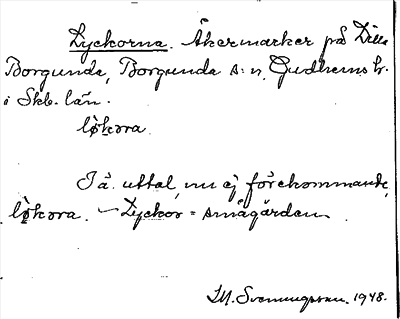 Lyckorna. Åkermarker på Lilla
Borgunda, Borgunda s:n. Gudhems h.
i Skb. län.
løkora
I ä. uttal, nu ej förekommande,
løkora. – Lyckor = smågärden
M. Svenungsson. 1948.